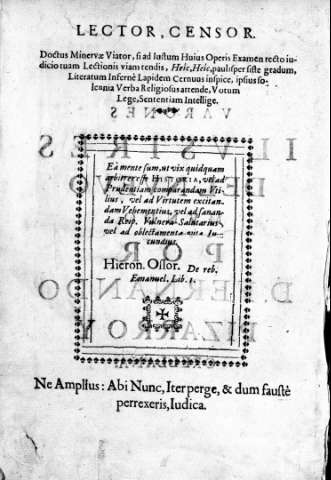 LECTOR, CENSOR.
Doctus Minervæ Viator, si ad Iustum Huius Operis Examen recto iu-
dicio tuam Lectionis viam tendis, Heic, Heic, paulisper siste gradum,
Literatum Infernè Lapidem Cernuus inspice, ipsius so-
Verba Religiosus attende, Votum
Lege, Sententiam Intellige.
Ea mente sum, ut vix quidquam
arbitrer esse HISTORIA, vel ad
Prudentiam comparandam Vti-
lius, vel ad Virtutem excitan-
dam Vehementius, vel ad sanan-
da Reip. Vulnera Salutarius,
vel ad oblectamenta vitæ Iu-
cundius.
Hieron. Ossor. De reb.
Emanuel. Lib. I.
Ne Amplius: Abi Nunc, Iter perge, & dum faustè
perrexeris, Iudica.
VARONES
ILUSTRES
POR
D. FERNANDO
PIZARRO